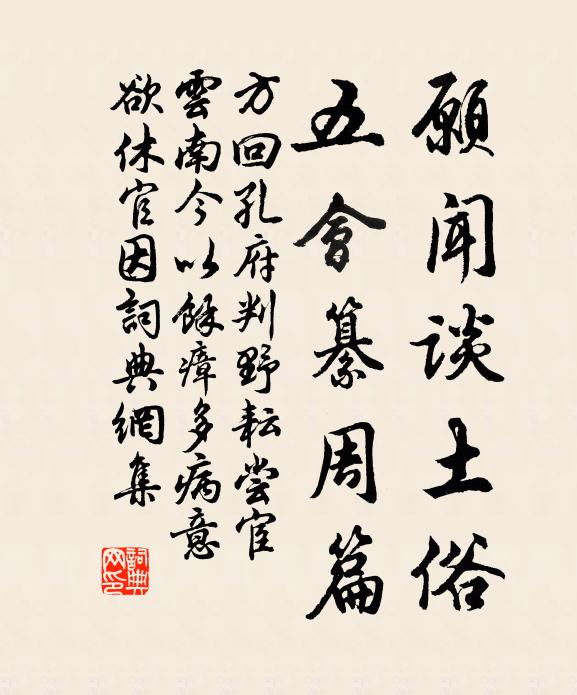 願聞談土俗
五會纂周篇
方回孔府判野耘嘗官
雲南今以餘瘴多病意
欲休官因詞典網集
詞典
网印